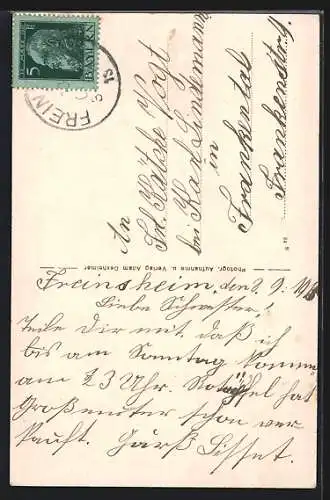 BAYERN
5
FREIN
An
Frl. Käthe Vogt
bei Karl Lindemann
in
Frankental
Photogr. Aufnahme u. Verlag Adam
Freinsheim, den 2. 9. 1912
Liebe Schwester!
Teile Dir mit, daß ich
bis am Sonntag komme
am ½3 Uhr. hat
Großmutter schon ver-
kauft. Lisset.